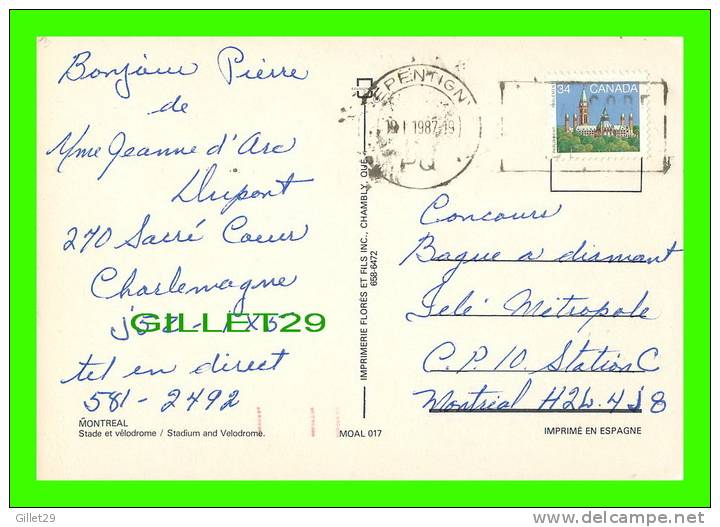 Bonjour Pierre
de
Mme Jeanne d'Arc
Dupont
270 Sacré Coeur
Charlemagne
GILLET29
tel en direct
581-2492
MONTREAL
Stade et vélodrome / Stadium and Velodrome.
MOAL 017
IMPRIMERIE FLORES ET FILS INC., CHAMBLY, QUÉ.
658-6472
PENTIGN
19 I 1987-19
PQ
34 CANADA
Concours
Bague a diamant
Télé Métropole
C.P. 10. Station C
Montréal H2L-4J8
IMPRIMÉ EN ESPAGNE
Gillet29
http://www.delcampe.net